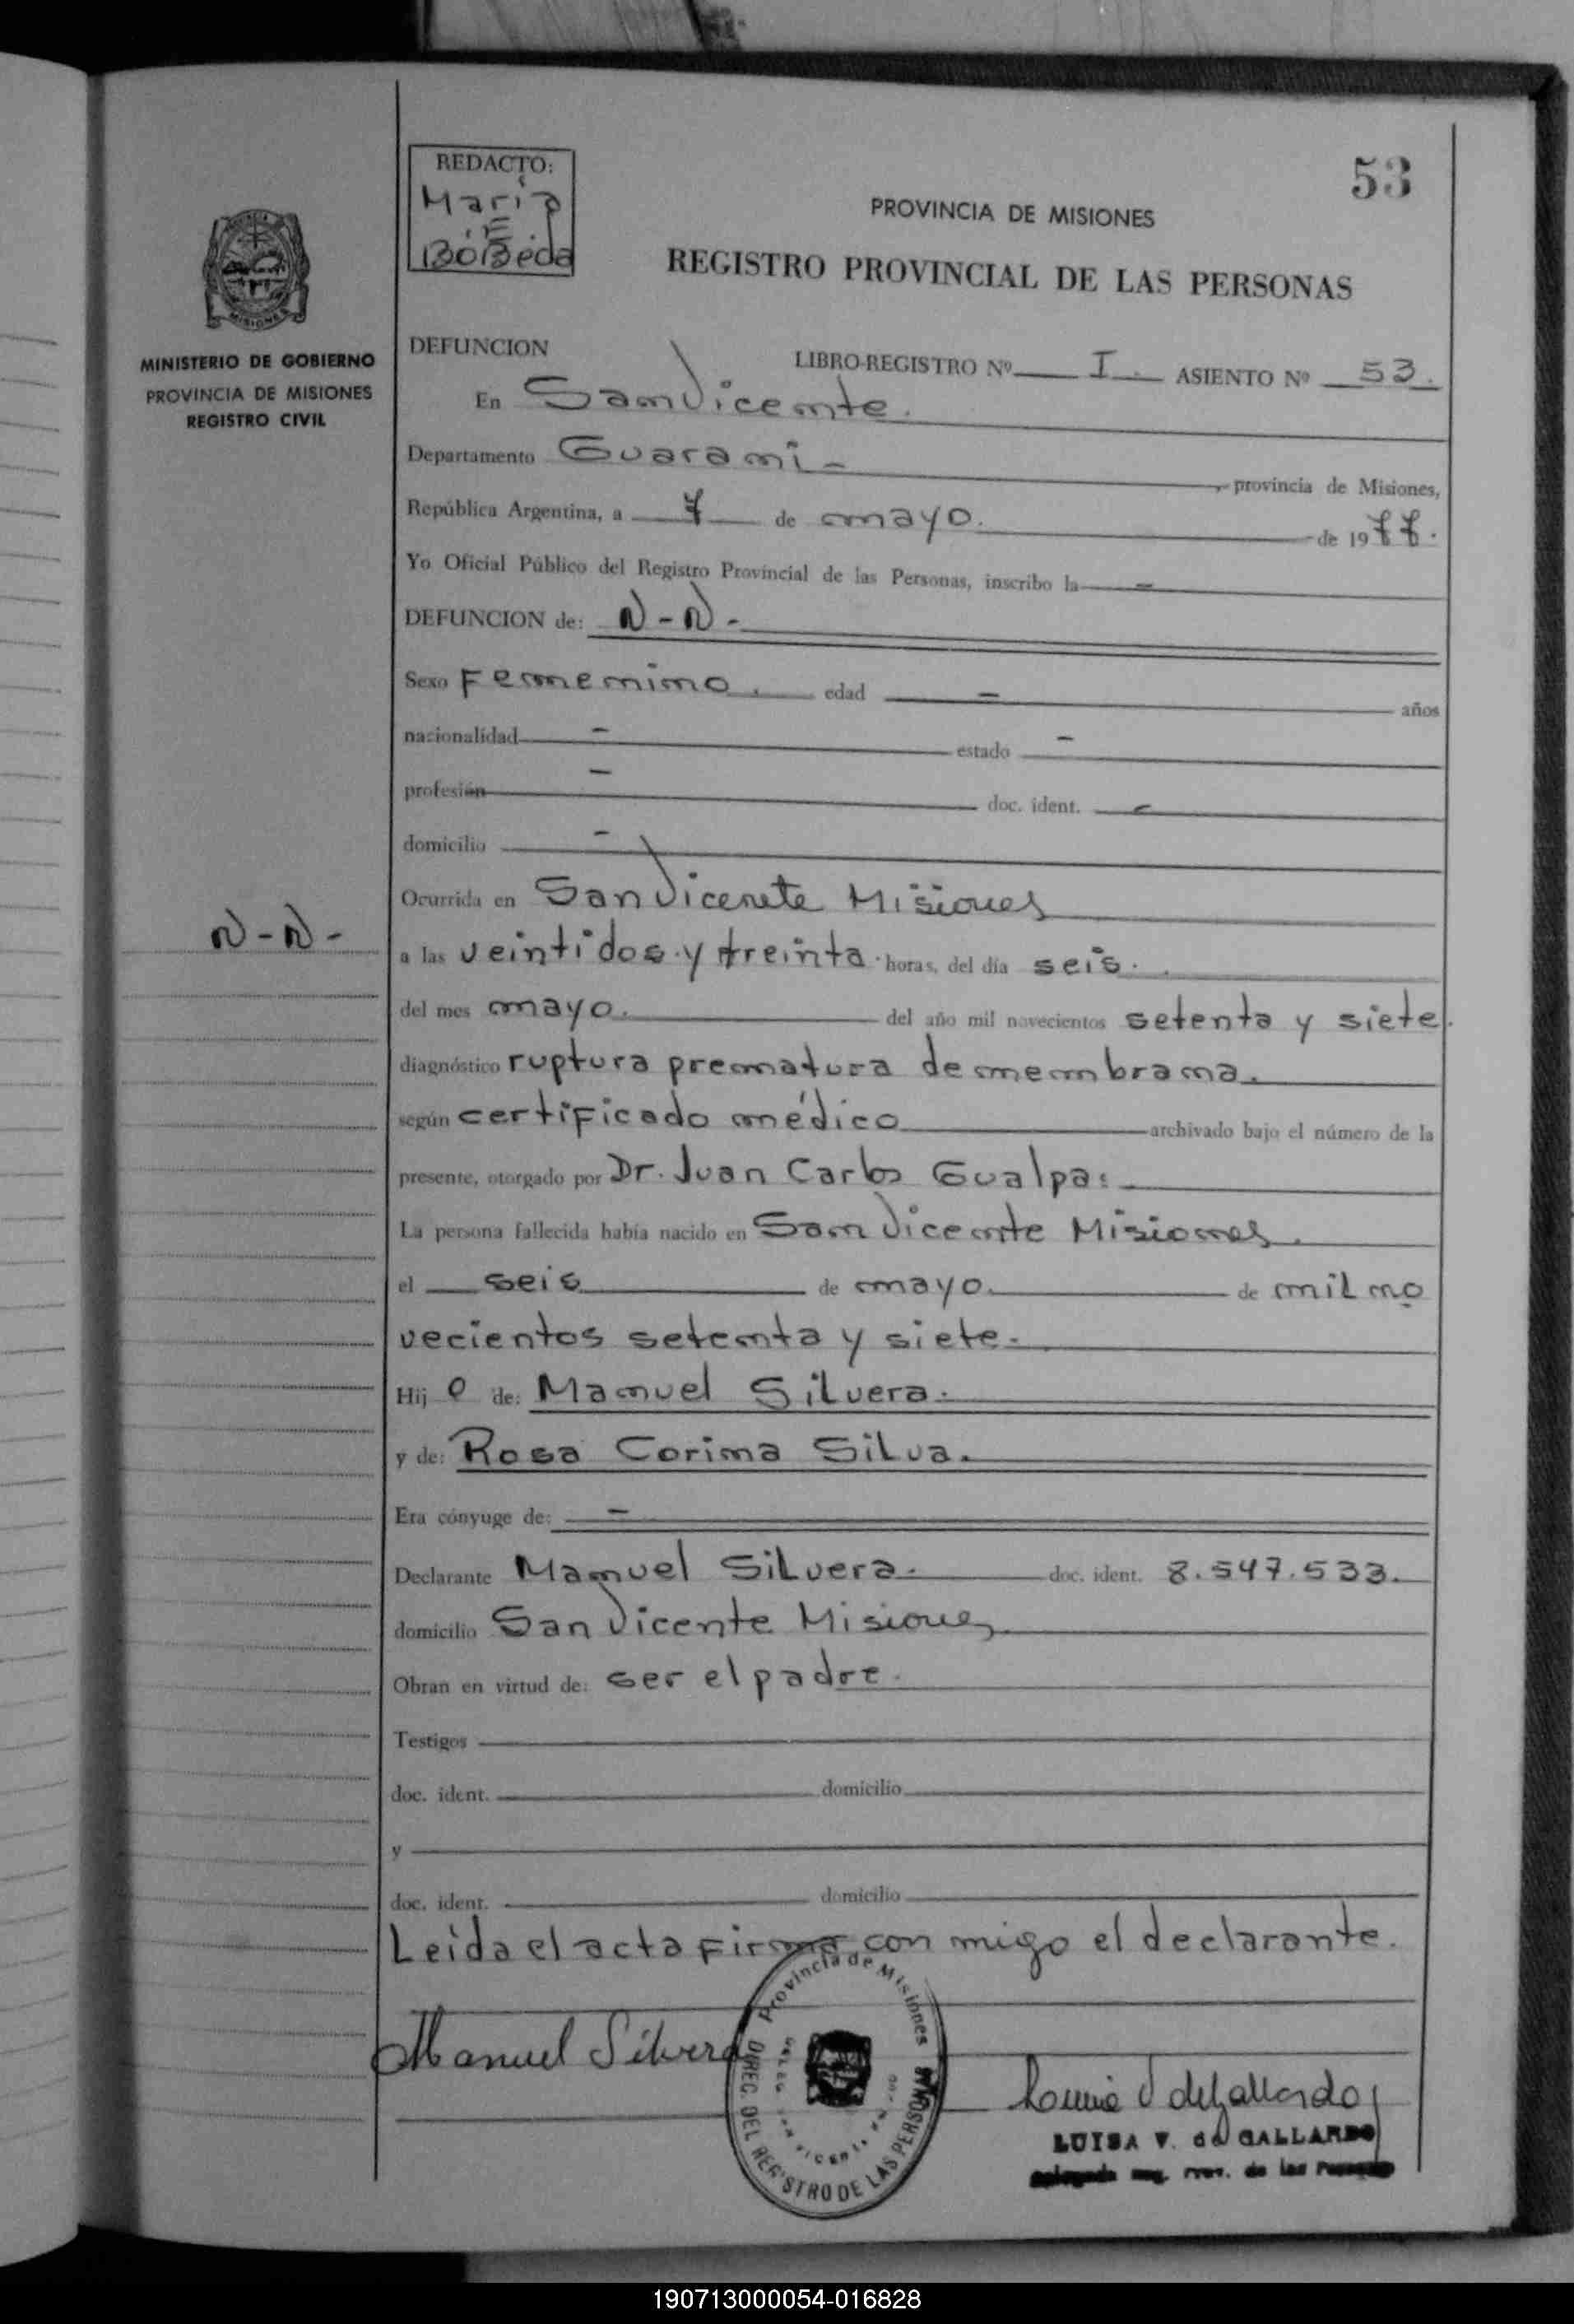 53
REDACTO:
Maria
E.
BoBeda
PROVINCIA DE MISIONES
REGISTRO PROVINCIAL DE LAS PERSONAS
MISIONES
MINISTERIO DE GOBIERNO
PROVINCIA DE MISIONES
REGISTRO CIVIL
DEFUNCION LIBRO-REGISTRO Nº I. ASIENTO Nº 53.
En San Vicente.
Departamento Guarani - , provincia de Misiones,
República Argentina, a 7 de mayo. de 1977.
Yo Oficial Público del Registro Provincial de las Personas, inscribo la -
DEFUNCION de: N-N-
Sexo Femenino. edad - años
nacionalidad - estado -
profesión - doc. ident. -
domicilio -
Ocurrida en San Vicenete Misiones
N-N-
a las veintidos y treinta horas, del día seis.
del mes mayo. del año mil novecientos setenta y siete.
diagnóstico ruptura prematura de membrana.
según certificado médico archivado bajo el número de la
presente, otorgado por Dr. Juan Carlos Gualpa:
La persona fallecida había nacido en San Vicente Misiones.
el seis de mayo. de mil no
vecientos setenta y siete.
Hij o de: Manuel Silvera.
y de: Rosa Corina Silva.
Era cónyuge de: -
Declarante Manuel Silvera. doc. ident. 8.547.533.
domicilio San Vicente Misiones
Obran en virtud de: ser el padre.
Testigos
doc. ident. domicilio
y
doc. ident. domicilio
Leida el acta firma con migo el declarante.
Manuel Silvera
Provincia de Misiones
DIREC. DEL REGISTRO DE LAS PERSONAS
Luisa V de Gallardo
LUISA V. de GALLARDO
de las
190713000054-016828